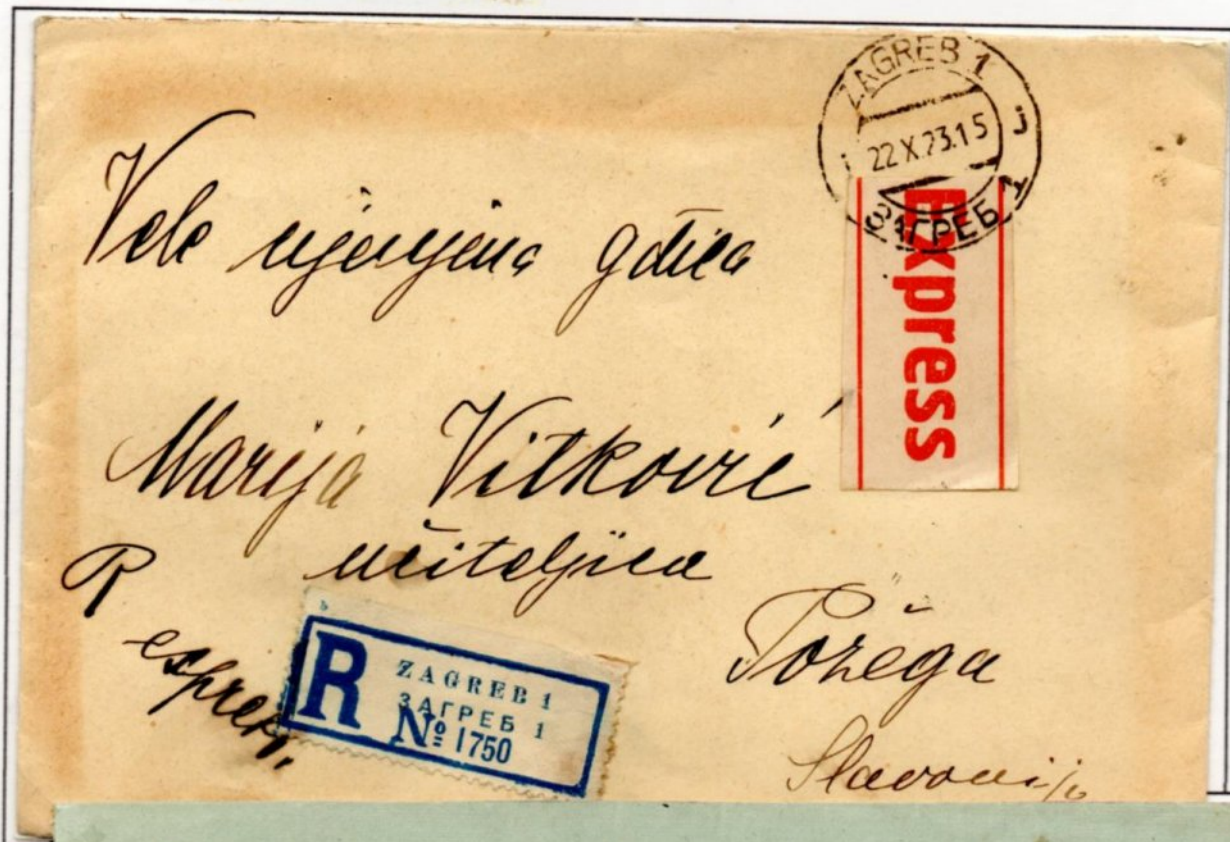 ZAGREB 1
22 X 23.15
ЗАГРЕБ 1
Express
Vele cjenjena gdica
Marija Vitković
učiteljica
R
Požega
R ZAGREB 1
ЗАГРЕБ 1
№ 1750
Slavonija